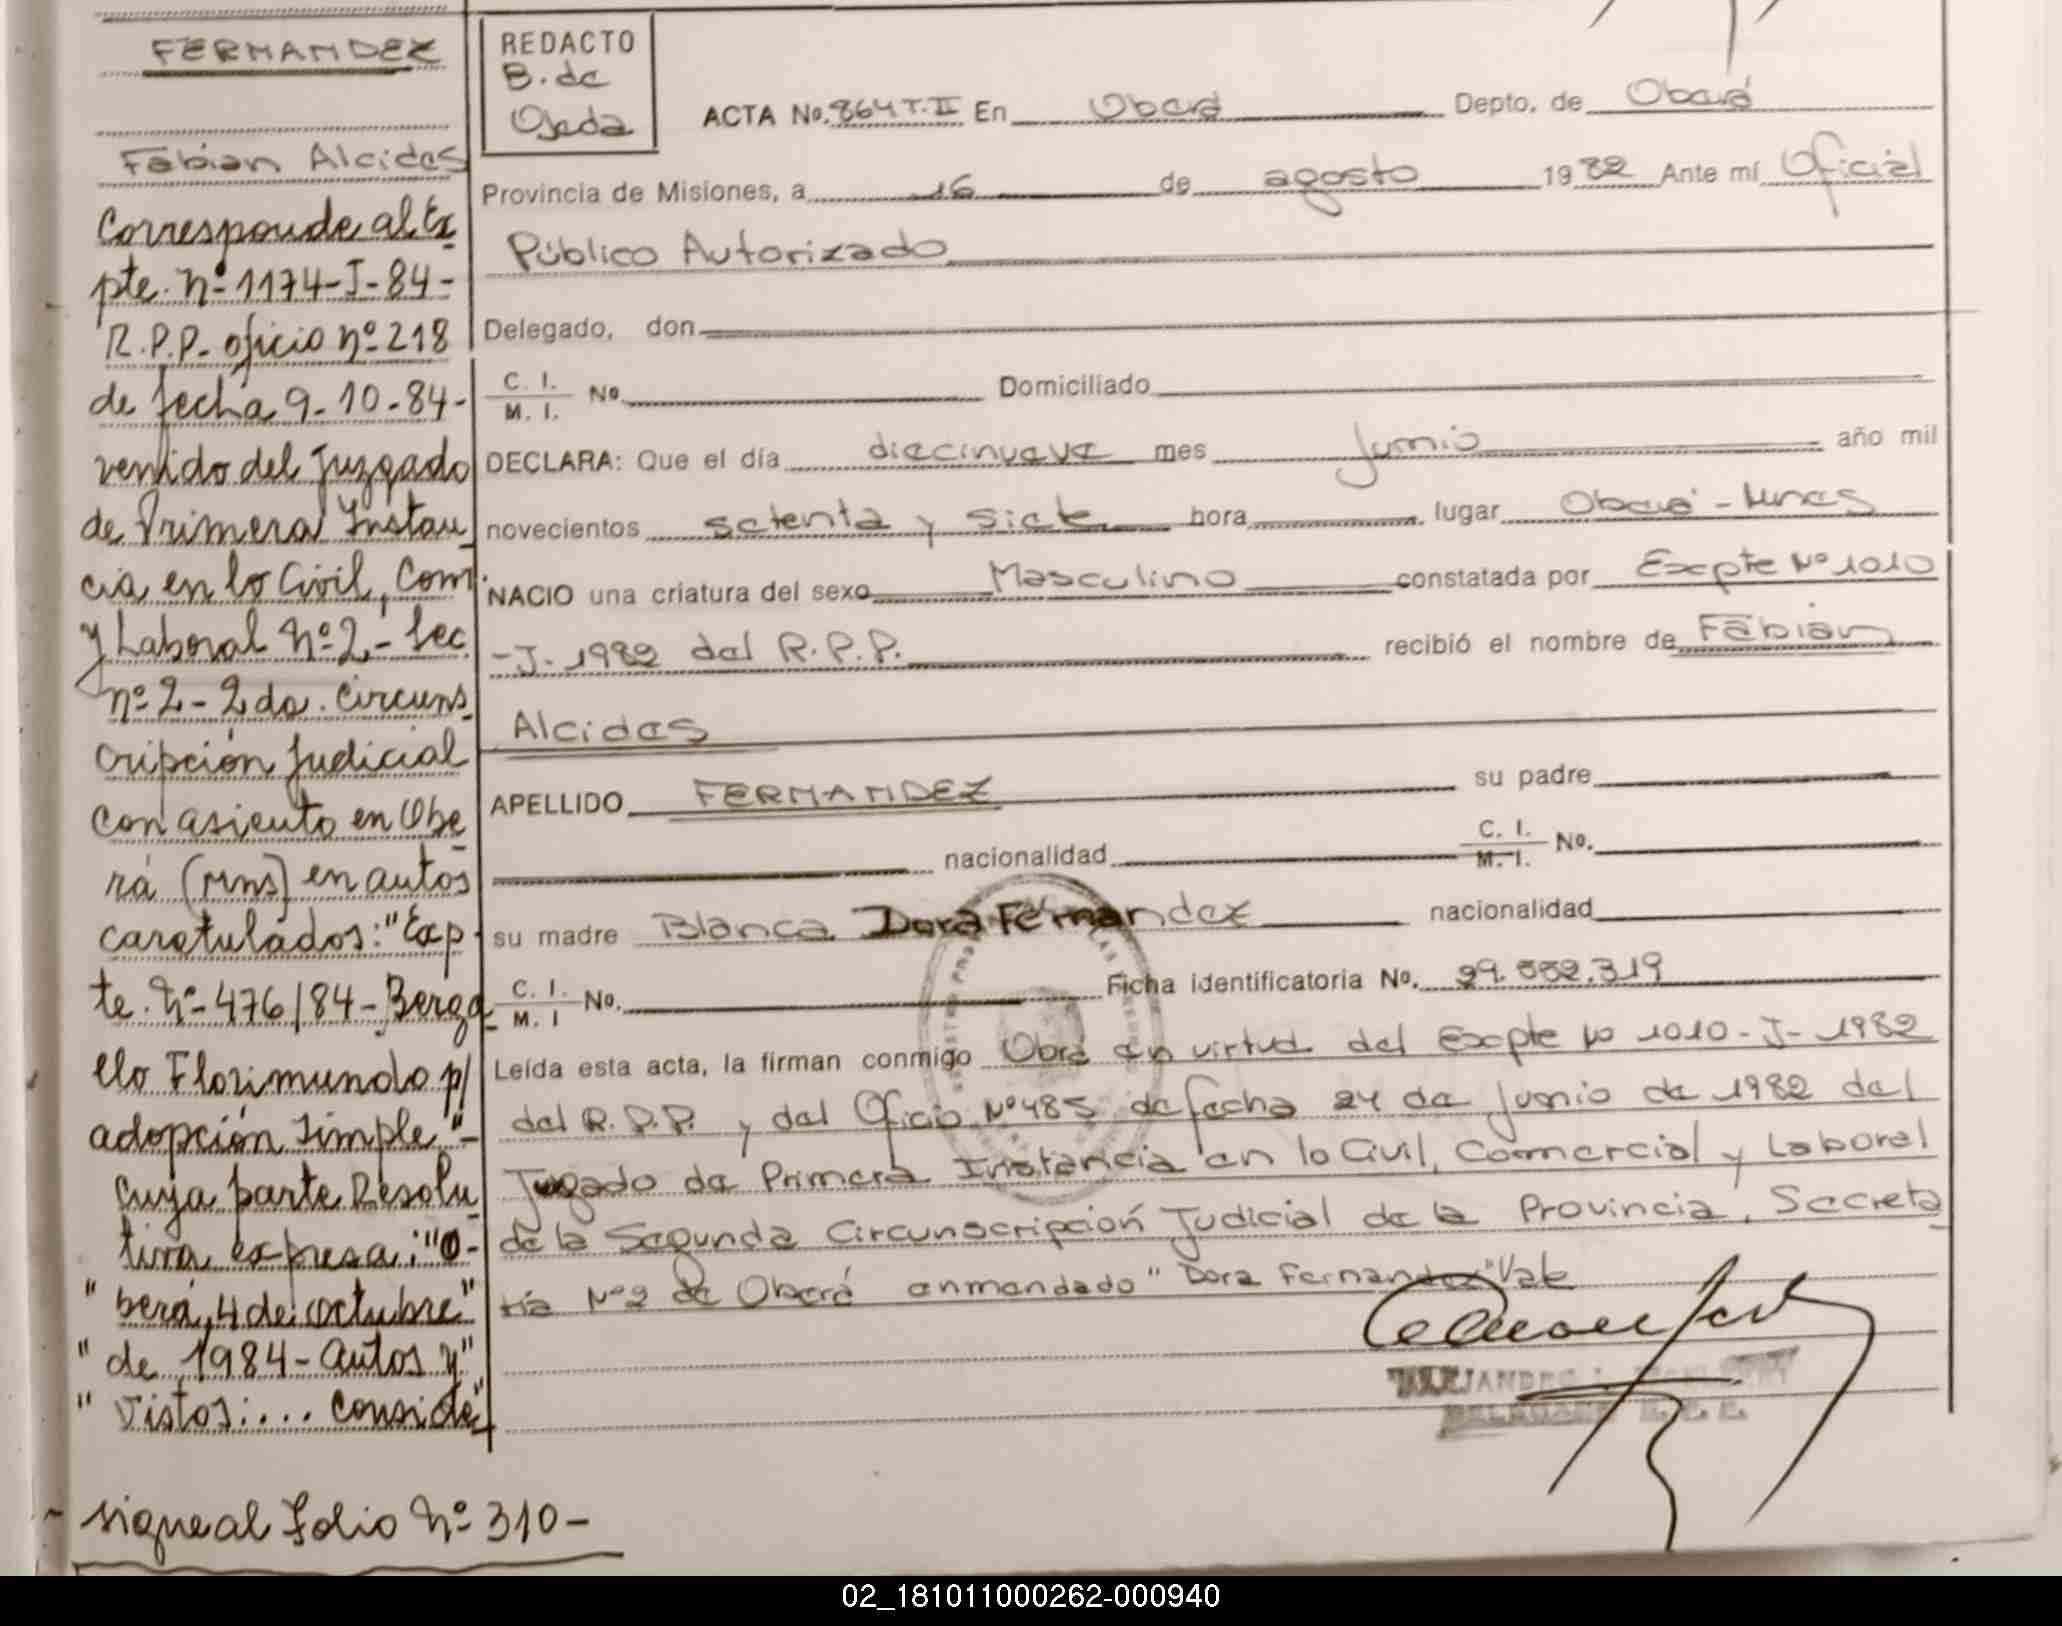 FERNANDEZ
Fabian Alcides
Corresponde al Ex
pte. nº 1174-J-84-
R.P.P. oficio nº 218
de fecha 9-10-84-
venido del Juzgado
de Primera Instan
cia en lo Civil, Com
y Laboral nº 2,- Sec.
nº 2 - 2da. Circuns
cripción Judicial
con asiento en Obe
rá (Mns) en autos
caratulados: "Exp
te. nº 476/84- Berga
llo Florimundo p/
adopción Simple"-
Cuya parte Resolu
tiva expresa: "O-
" berá, 4 de octubre"
" de 1984- autos y"
" Vistos:... Conside"
sigue al Folio nº 310-
REDACTO
B. de
Ojeda
ACTA No. 864 T. II En Oberá Depto. de Oberá
Provincia de Misiones, a 16 de agosto 1982 Ante mí Oficial
Público Autorizado
Delegado, don
C. I.
M. I. No. Domiciliado
DECLARA: Que el día diecinueve mes Junio año mil
novecientos setenta y siete hora lugar Oberá - Mnes
NACIO una criatura del sexo Masculino constatada por Expte Nº 1010
-J- 1982 del R.P.P. recibió el nombre de Fabián
Alcides
APELLIDO FERNANDEZ su padre
nacionalidad C. I. M. I. No.
su madre Blanca Dora Fernandez nacionalidad
C. I.
M. I No. Ficha identificatoria No. 29.552.319
Leída esta acta, la firman conmigo Obra en virtud del Expte Nº 1010-J- 1982
del R.P.P. y del Oficio Nº 485 de fecha 24 de junio de 1982 del
Juzgado de Primera Instancia en lo Civil, Comercial y Laboral
de la Segunda Circunscripción Judicial de la Provincia, Secreta
ría Nº 2 de Oberá enmendado "Dora Fernandez" Vale
02_181011000262-000940